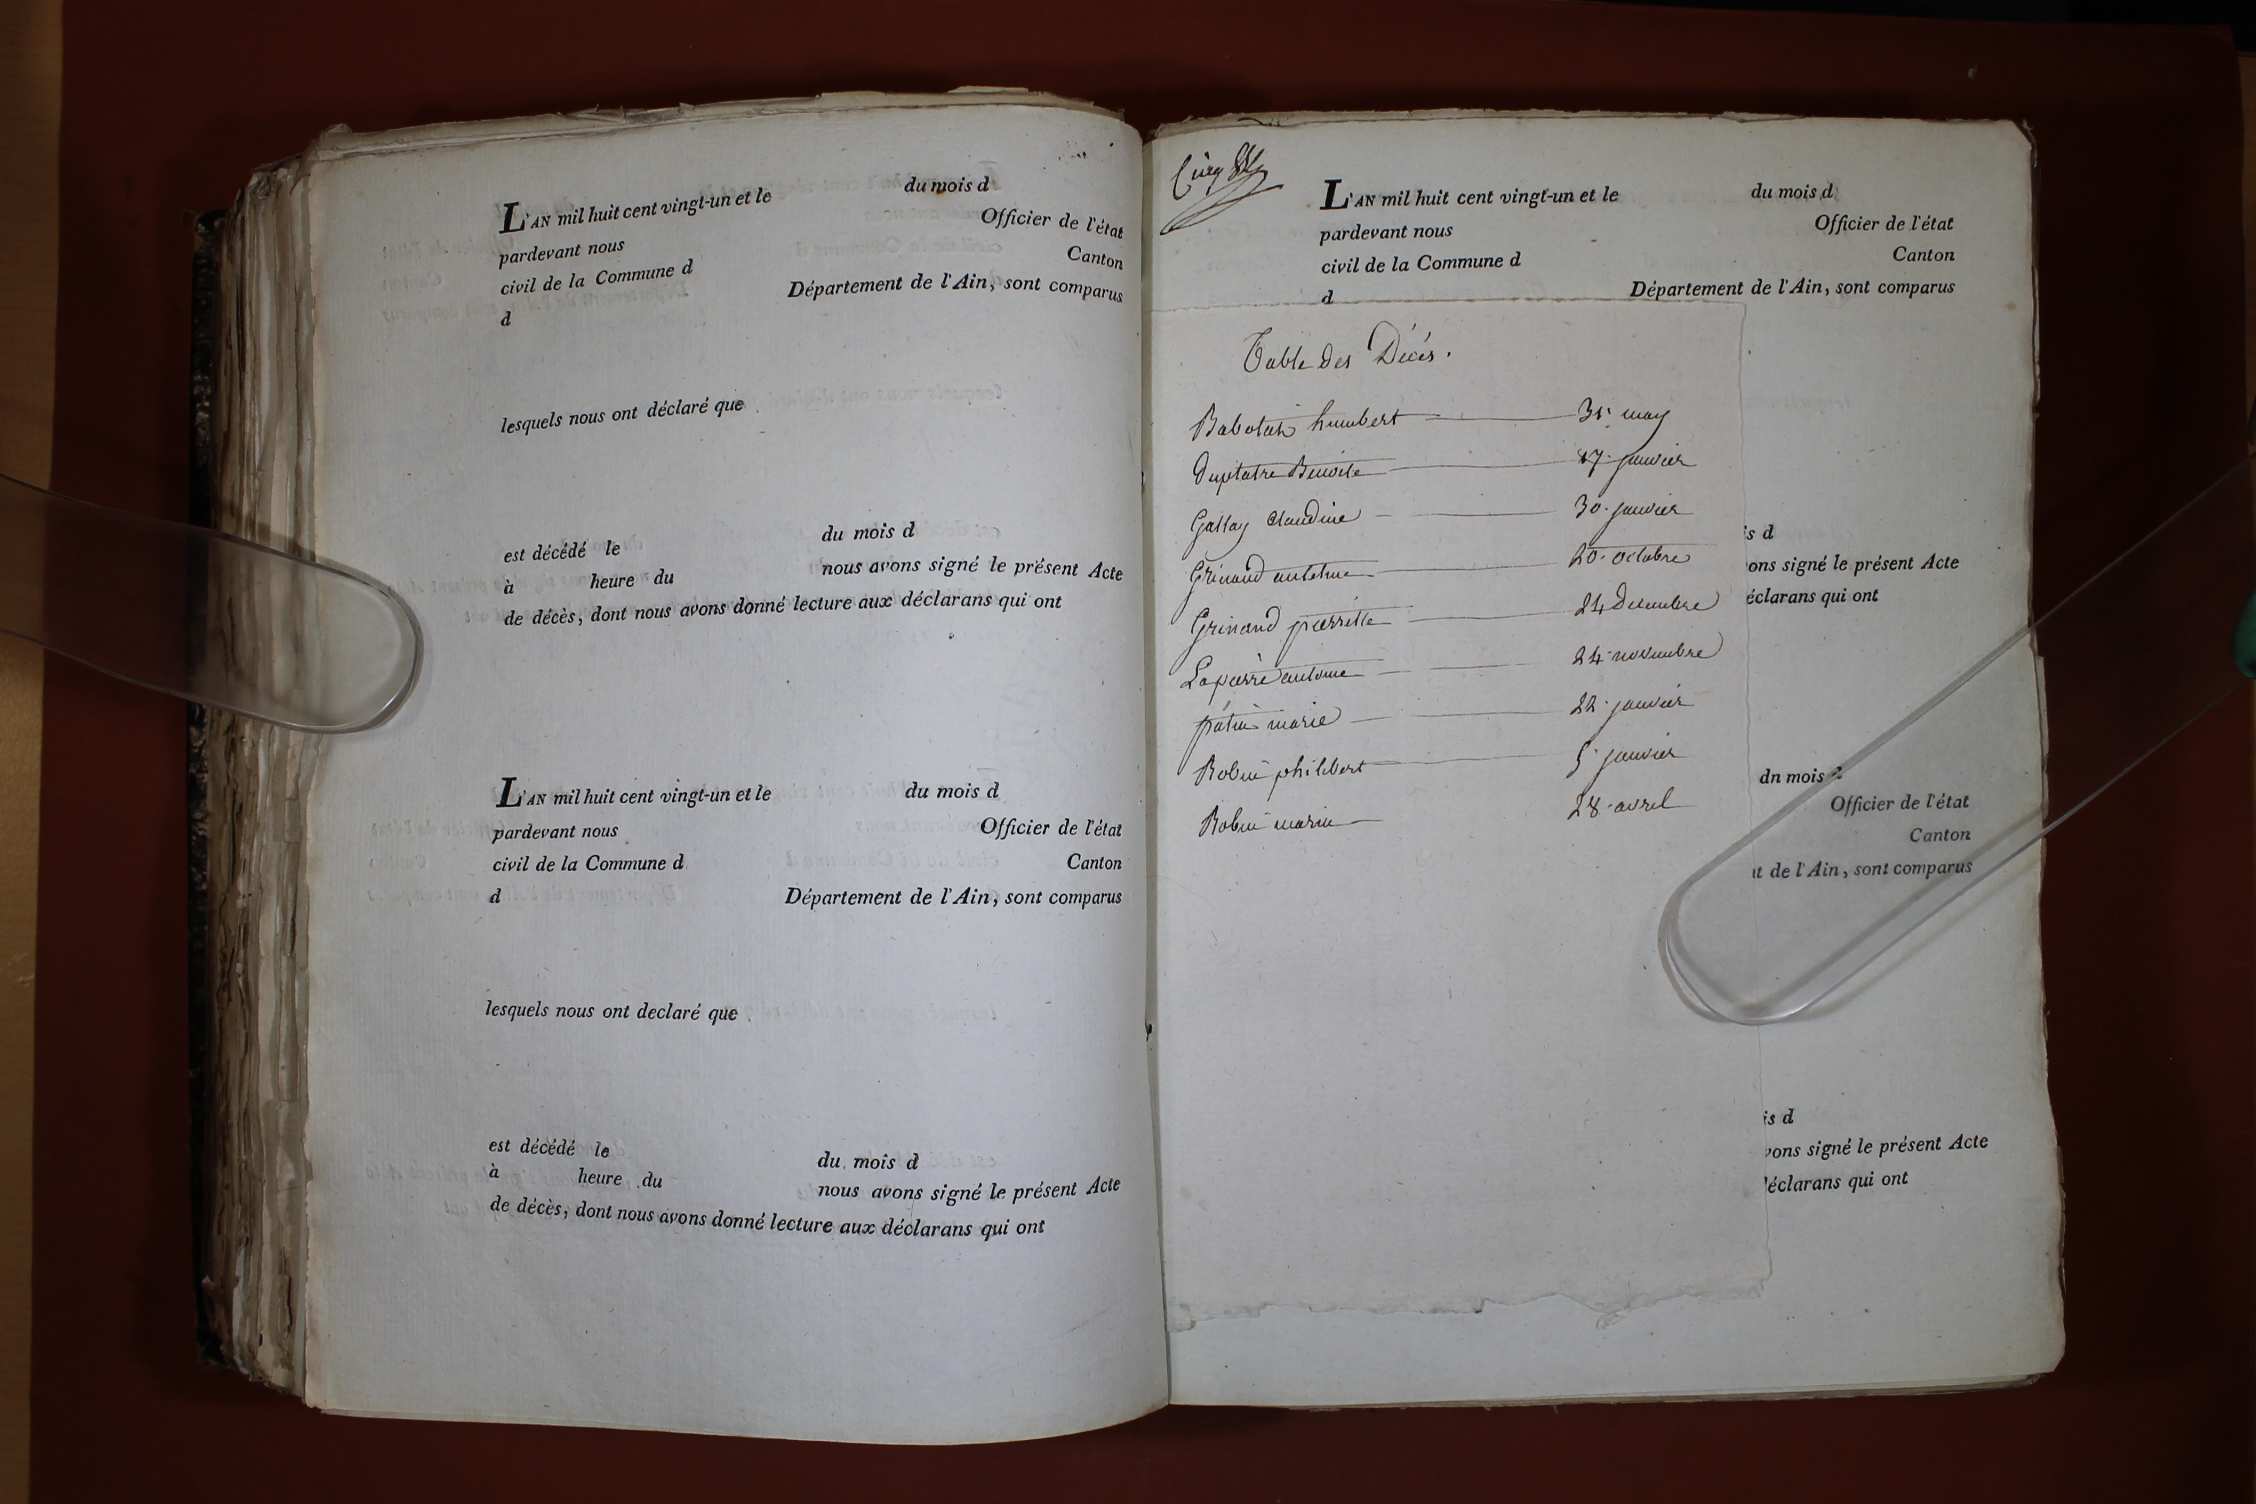 L'AN mil huit cent vingt-un et le du mois d
pardevant nous Officier de l'état
civil de la Commune d Canton
d Département de l'Ain, sont comparus
lesquels nous ont déclaré que
est décédé le du mois d
à heure du nous avons signé le présent Acte
de décès, dont nous avons donné lecture aux déclarans qui ont
L'AN mil huit cent vingt-un et le du mois d
pardevant nous Officier de l'état
civil de la Commune d Canton
d Département de l'Ain, sont comparus
lesquels nous ont declaré que
est décédé le du mois d
à heure du nous avons signé le présent Acte
de décès, dont nous avons donné lecture aux déclarans qui ont
L'AN mil huit cent vingt-un et le du mois d
pardevant nous Officier de l'état
civil de la Commune d Canton
d Département de l'Ain, sont comparus
Table des Décés.
humbert 31. may
Benoite 17. janvier
Gallay Claudine 30. janvier
Grinand antelme 20. octobre
Grinand pierrette 24 Decembre
Lapierre antoine 24. novembre
marie 22. janvier
Robin philibert 5. janvier
Robin marie 28. avril
is d
ons signé le présent Acte
éclarans qui ont
dn mois d
Officier de l'état
Canton
nt de l'Ain, sont comparus
is d
vons signé le présent Acte
déclarans qui ont